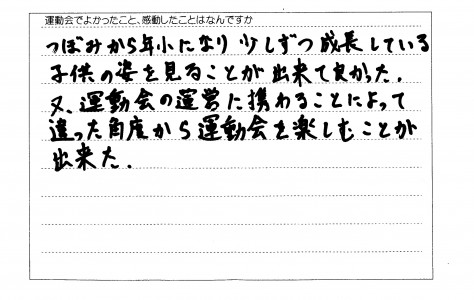 運動会でよかったこと、感動したことはなんですか
つぼみから年小になり少しずつ成長している
子供の姿を見ることが出来て良かった.
又、運動会の運営に携わることによって
違った角度から運動会を楽しむことが
出来た.